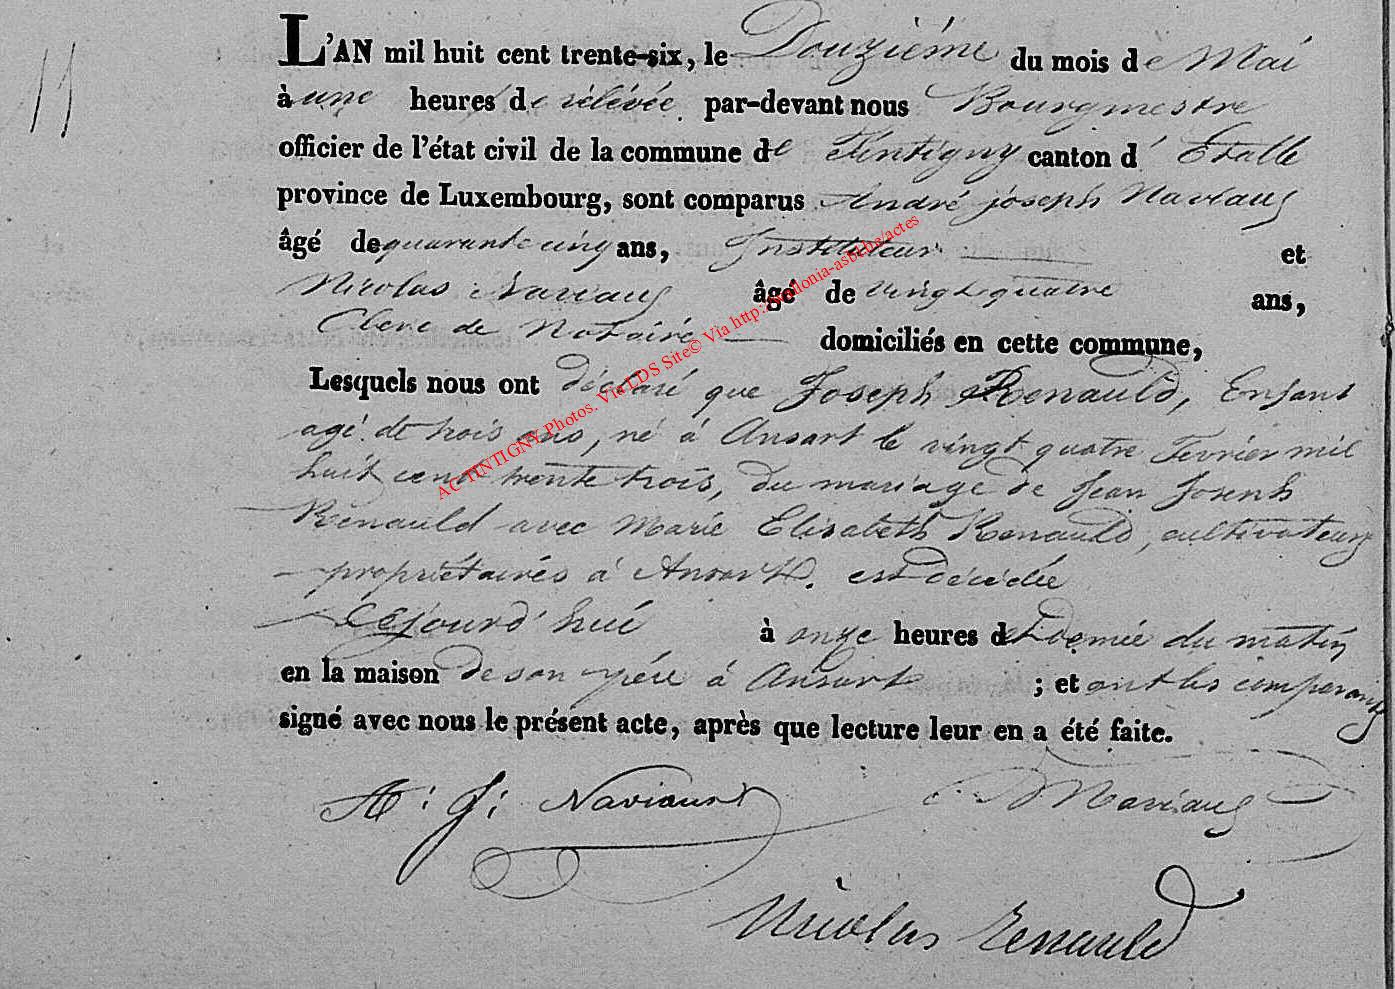 11
L'AN mil huit cent trente-six, le Douzième du mois de Mai
à une heures de rélévée par-devant nous Bourgmestre
officier de l'état civil de la commune de Tintigny canton d' Etalle
province de Luxembourg, sont comparus André joseph Naviaux
âgé de quarante cinq ans, Instituteur et
Nicolas Naviaux âgé de vingt quatre ans,
Clerc de Notaire domiciliés en cette commune,
Lesquels nous ont déclaré que Joseph Renauld, Enfant
agé de trois ans, né à Ansart le vingt quatre Fevrier mil
huit cent trente trois, du mariage de Jean Joseph
Renauld avec Marie Elisabeth Renauld, cultivateurs
propriétaires à Ansart. est décédée
Cejourd'hui à onze heures et Demie du matin
en la maison de son père à Ansart ; et ont les comparants
signé avec nous le présent acte, après que lecture leur en a été faite.
A: J: Naviaux Naviaux
Nicolas Renauld
ACTINTIGNY Photos. Via LDS Site© Via http://wallonia-asbl.be/actes